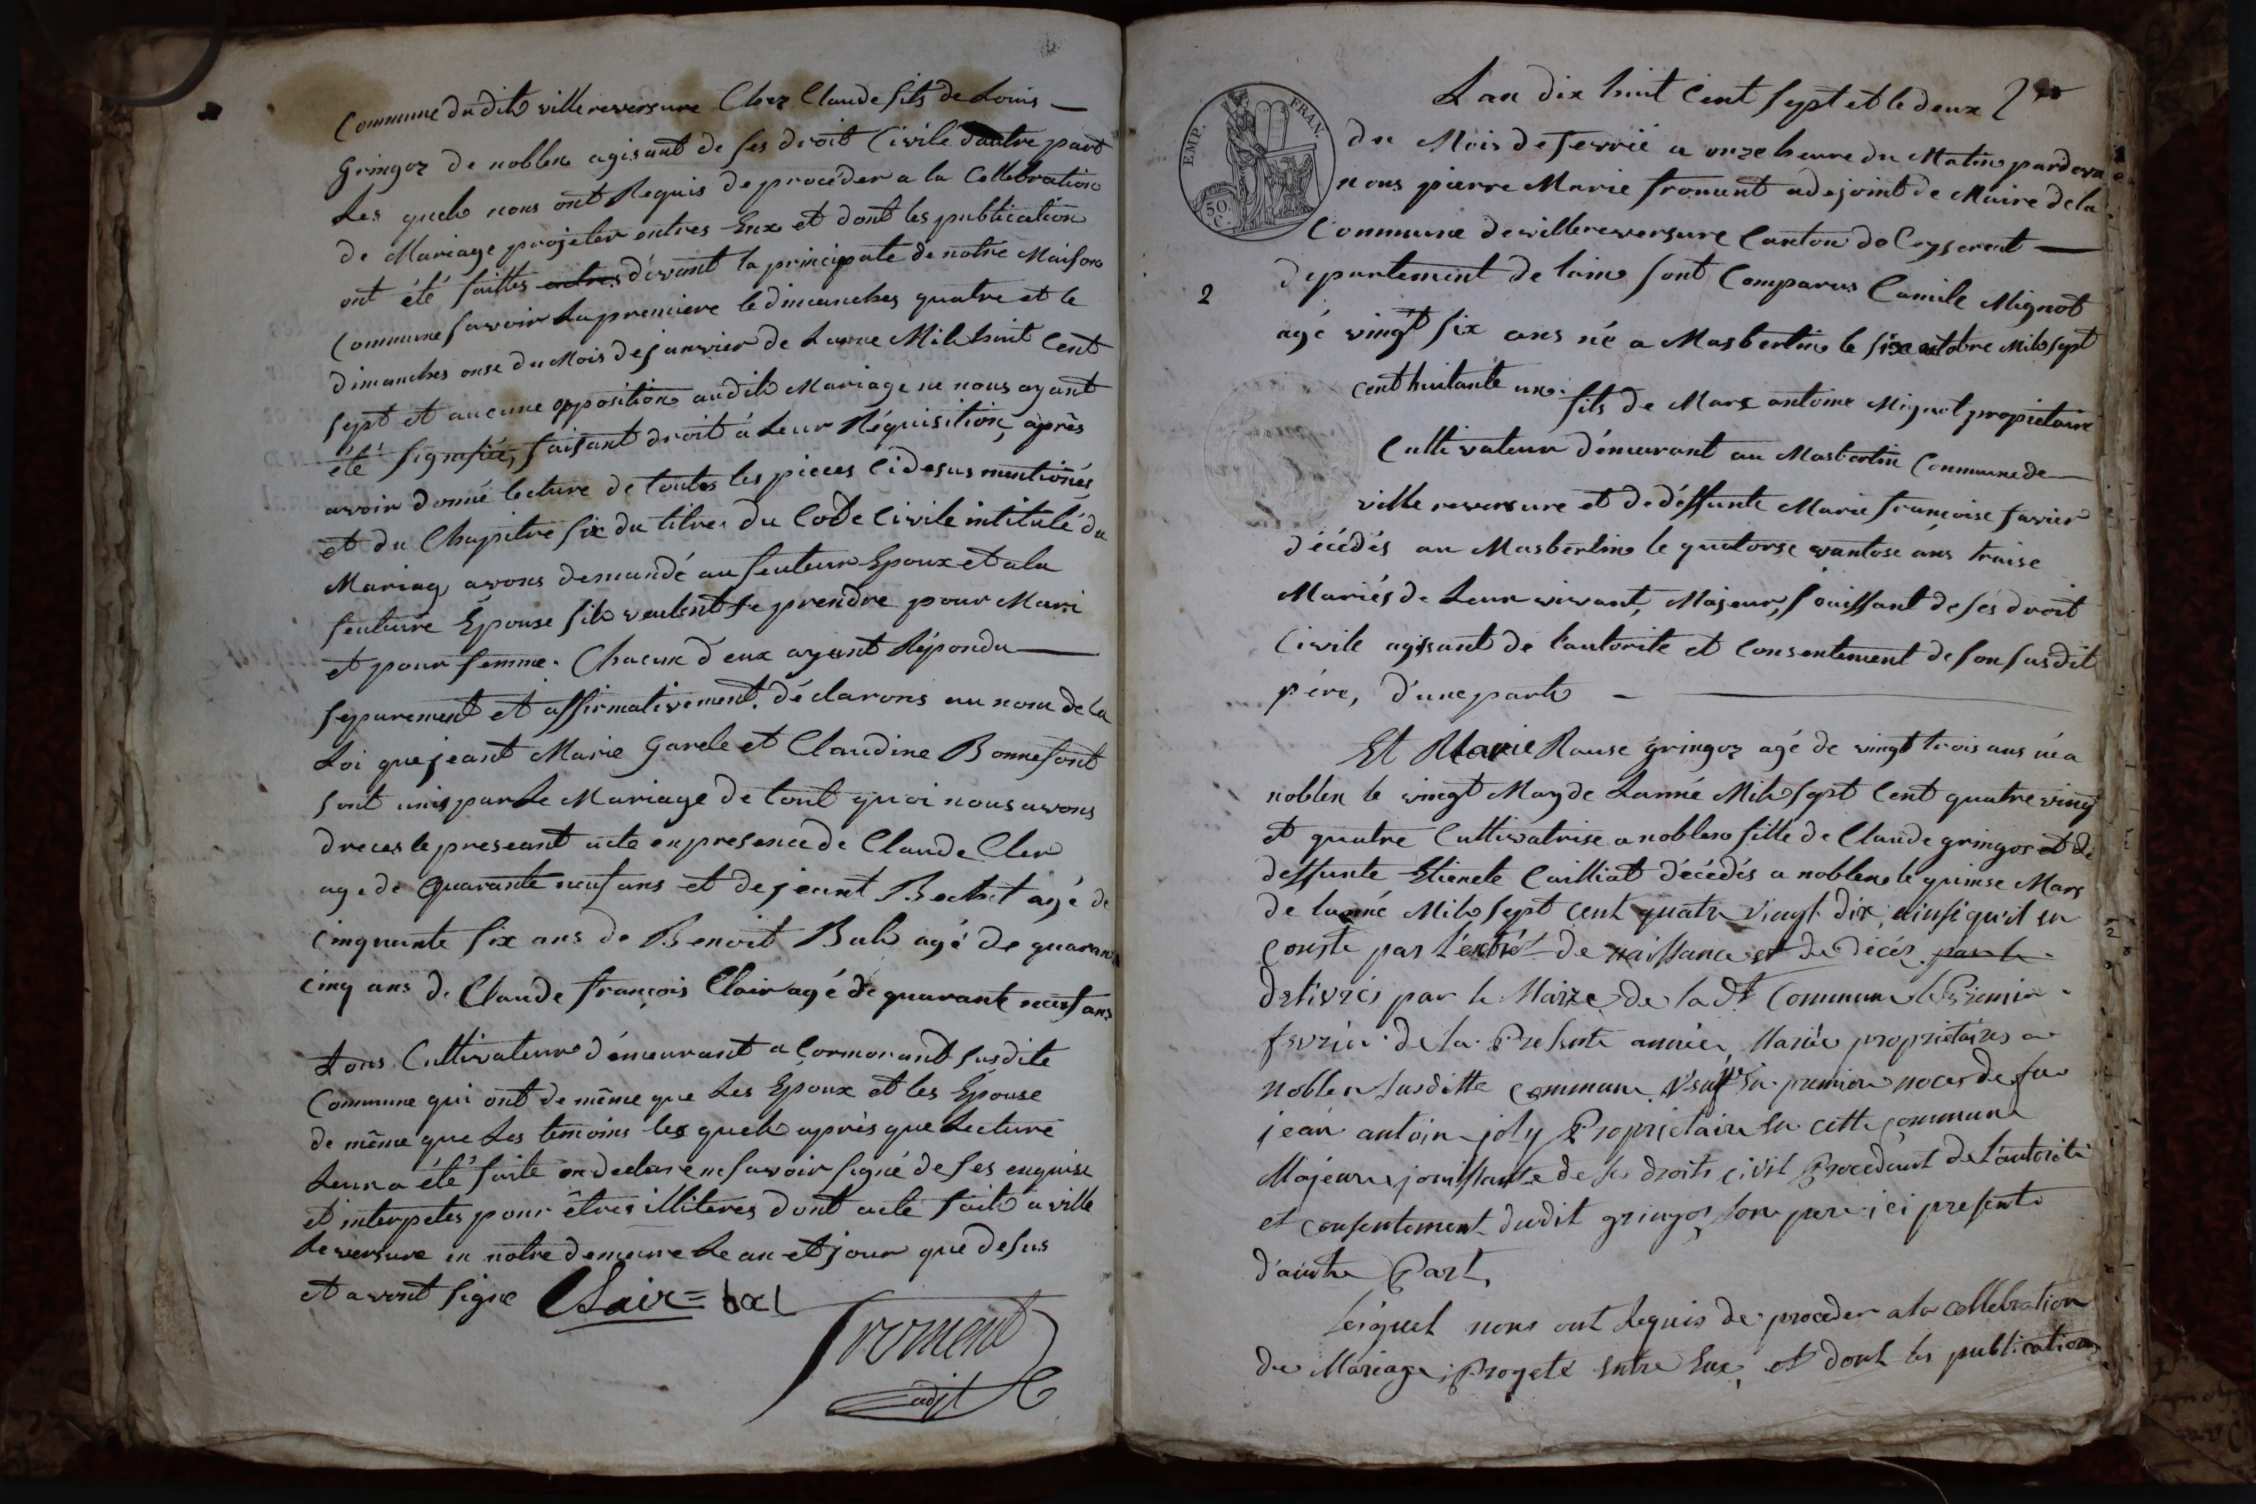 Commune du dit villereversure Chez Claude fils de Louis
Gringoz de noblen agisant de ses droit Civile d'autre part
Les quels nons ont Requis de procéder a la Cellebration
de Mariage projeter entres Eux et dont les publication
ont été faittes entres dévant la principale de notre Maison
Commune savoir La premiere le dimanches quatre et le
dimanches onse du Mois de janvier de Lanne Mil huit Cent
sept et aucune opposition audit Mariage ne nous ayant
été signifiée, faisant droit á Leur Réquisition, après
avoir donné lecture de toutes les pieces Cidesus mentionés
et du Chapitre six du titre du Code Civile intitulé du
Mariag, avons demandé au feuteur Epoux et a la
feuture Épouse sils veulent se prendre pour Mari
et pour femme. Chacun d'eux ayant Répondu
separement et affirmativement, déclarons au nom de la
Loi que jeant Marie Garele et Claudine Bonnefont
sont unis par Le Mariage de tout quoi nous avons
dreces le preseant acte en presence de Claude Cler
age de quarante neuf ans et de jeant Bechet agé de
Cinquante six ans de Benoit Bal agé de quaran
Cinq ans de Claude françois Clair agé de quarante neuf ans
Tous Cultivateur démeurant a Cormorant susdite
Commune qui ont de même que Les Époux et les Épouse
de même que Les temoins les quels après que Lecture
Leur a été faite on declare ne savoir signé de ses enquise
et interpetes pour êtres illiteres dont acte fait a ville
Reversure en notre demeure Le an et jour que desus
et avont signe Clair = bal
froment
adjt
EMP. FRAN.
50 C.
Lan dix huit Cent sept et le deux
du Mois de fevrié a onze heure du Matin par deva
nous pierre Marie froment adejoint de Maire de la
Commune de villereversure Canton de Ceyserent
departement de lain sont Comparus Camile Mignot
2
agé vingt six ans né a Masbertin le six octobre Mil sept
cent huitante un.
fils de Marc antoine Mignot propietaire
Cultivateur démeurant au Masbertin Commune de
ville reversure et de déffunte Marie françoise favier
décédés au Masbertin le quatorse vantose ans traise
Mariés de Leur vivant, Majeur, jouissant de ses droit
Civile agisant de l'autorite et Consentement de son susdit
père, d'une part
Et Marie Rause gringoz agé de vingt trois ans né a
noblen le vingt May de Lanné Mil sept Cent quatre vingt
et quatre Cultivatrise a noblen fille de Claude gringoz et de
deffunte Etienete Cailliat décédés a noblen le quinse Mars
de lanné Mil sept Cent quatre vingt dix, ainsi qu'il en
conste par l'extrét de naissance et de décéz par le
delivrés par le Maire de la dt Commune le Premier
fevrier de la Presente année, Mariée propriétaires a
noblen susditte commune Veuve en premier noces de feu
jean antoin joly Proprietaire en cette commune
Majeure jouissante de ses droits civil Procedant de l'autorité
et consentement dudit gringoz son pere ici present
d'autre Part,
Lésquel nous ont Requis de proceder a la cellebration
du Mariage Progeté entre Eux, et dont les publications